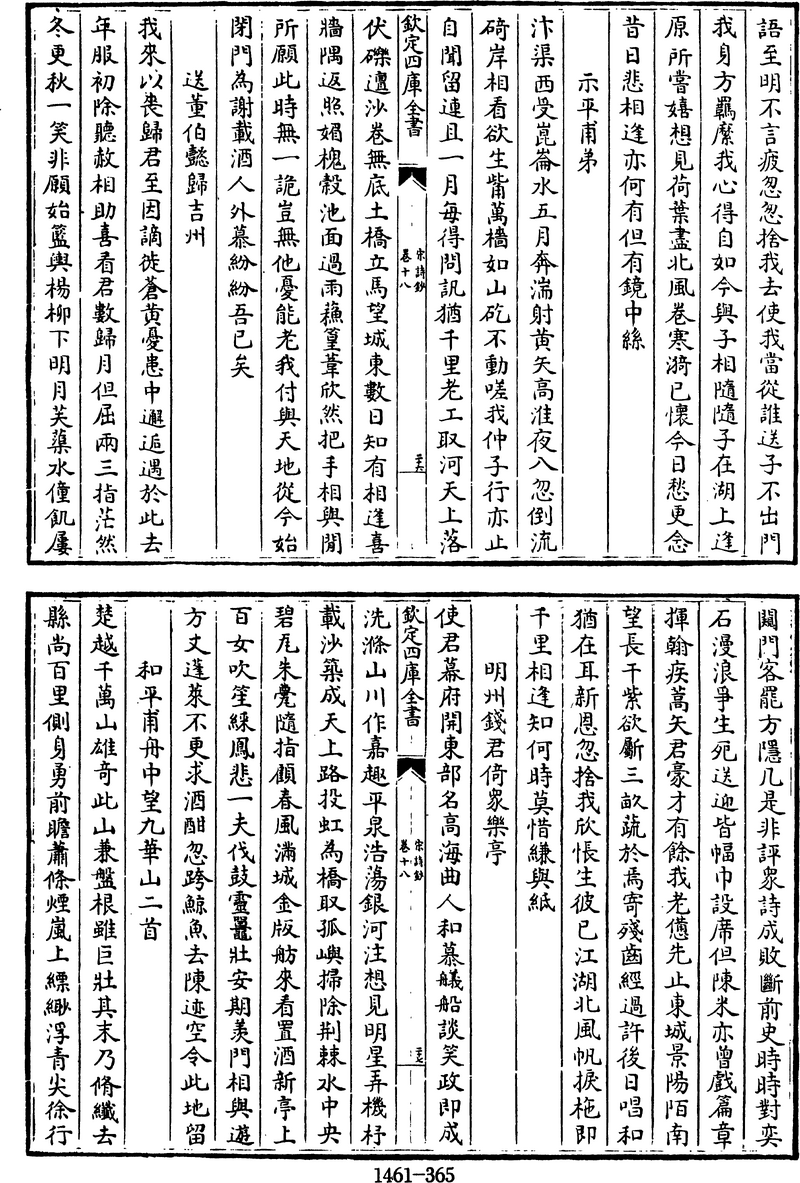 語至明不言疲忽忽捨我去使我當從誰送子不出門
我身方羈縻我心得自如今與子相隨隨子在湖上逢
原所嘗嬉想見荷葉盡北風卷寒漪已懷今日愁更念
昔日悲相逢亦何有但有鏡中絲
示平甫弟
汴渠西受崑崙水五月奔湍射黄矢高淮夜入忽倒流
碕岸相看欲生觜萬檣如山矻不動嗟我仲子行亦止
自聞留連且一月每得問訊猶千里老工取河天上落
欽定四庫全書
宋詩鈔
卷十八
伏礫邅沙卷無底土橋立馬望城東數日知有相逢喜
牆隅返照媚槐榖池面過雨蘓篁葦欣然把手相與閒
所願此時無一詭豈無他憂能老我付與天地從今始
閉門為謝載酒人外慕紛紛吾已矣
送董伯懿歸吉州
我來以喪歸君至因謫徙蒼黄憂患中邂逅遇於此去
年服初除聽赦相助喜看君數歸月但屈兩三指茫然
冬更秋一笑非願始籃輿楊柳下明月芙蕖水僮飢屢
闚門客罷方隱几是非評衆詩成敗斷前史時時對奕
石漫浪爭生死送迎皆幅巾設席但陳米亦曾戲篇章
揮翰疾蒿矢君豪才有餘我老憊先止東城景陽陌南
望長干紫欲斸三畝蔬於焉寄殘齒經過許後日唱和
猶在耳新恩忽捨我欣悵生彼已江湖北風帆捩柂即
千里相逢知何時莫惜縑與紙
明州錢君倚衆樂亭
使君幕府開東部名高海曲人和慕艤船談笑政即成
欽定四庫全書
宋詩鈔
卷十八
洗滌山川作嘉趣平泉浩蕩銀河注想見明星弄機杼
載沙築成天上路投虹為橋取孤嶼掃除荆棘水中央
碧瓦朱甍隨指顧春風滿城金版舫來看置酒新亭上
百女吹笙綵鳳悲一夫伐鼓靈鼉壯安期羡門相與遊
方丈蓬萊不更求酒酣忽跨鯨魚去陳迹空令此地留
和平甫舟中望九華山二首
楚越千萬山雄竒此山兼盤根雖巨壯其末乃脩纖去
縣尚百里側身勇前瞻蕭條煙嵐上縹緲浮青尖徐行
1461-365